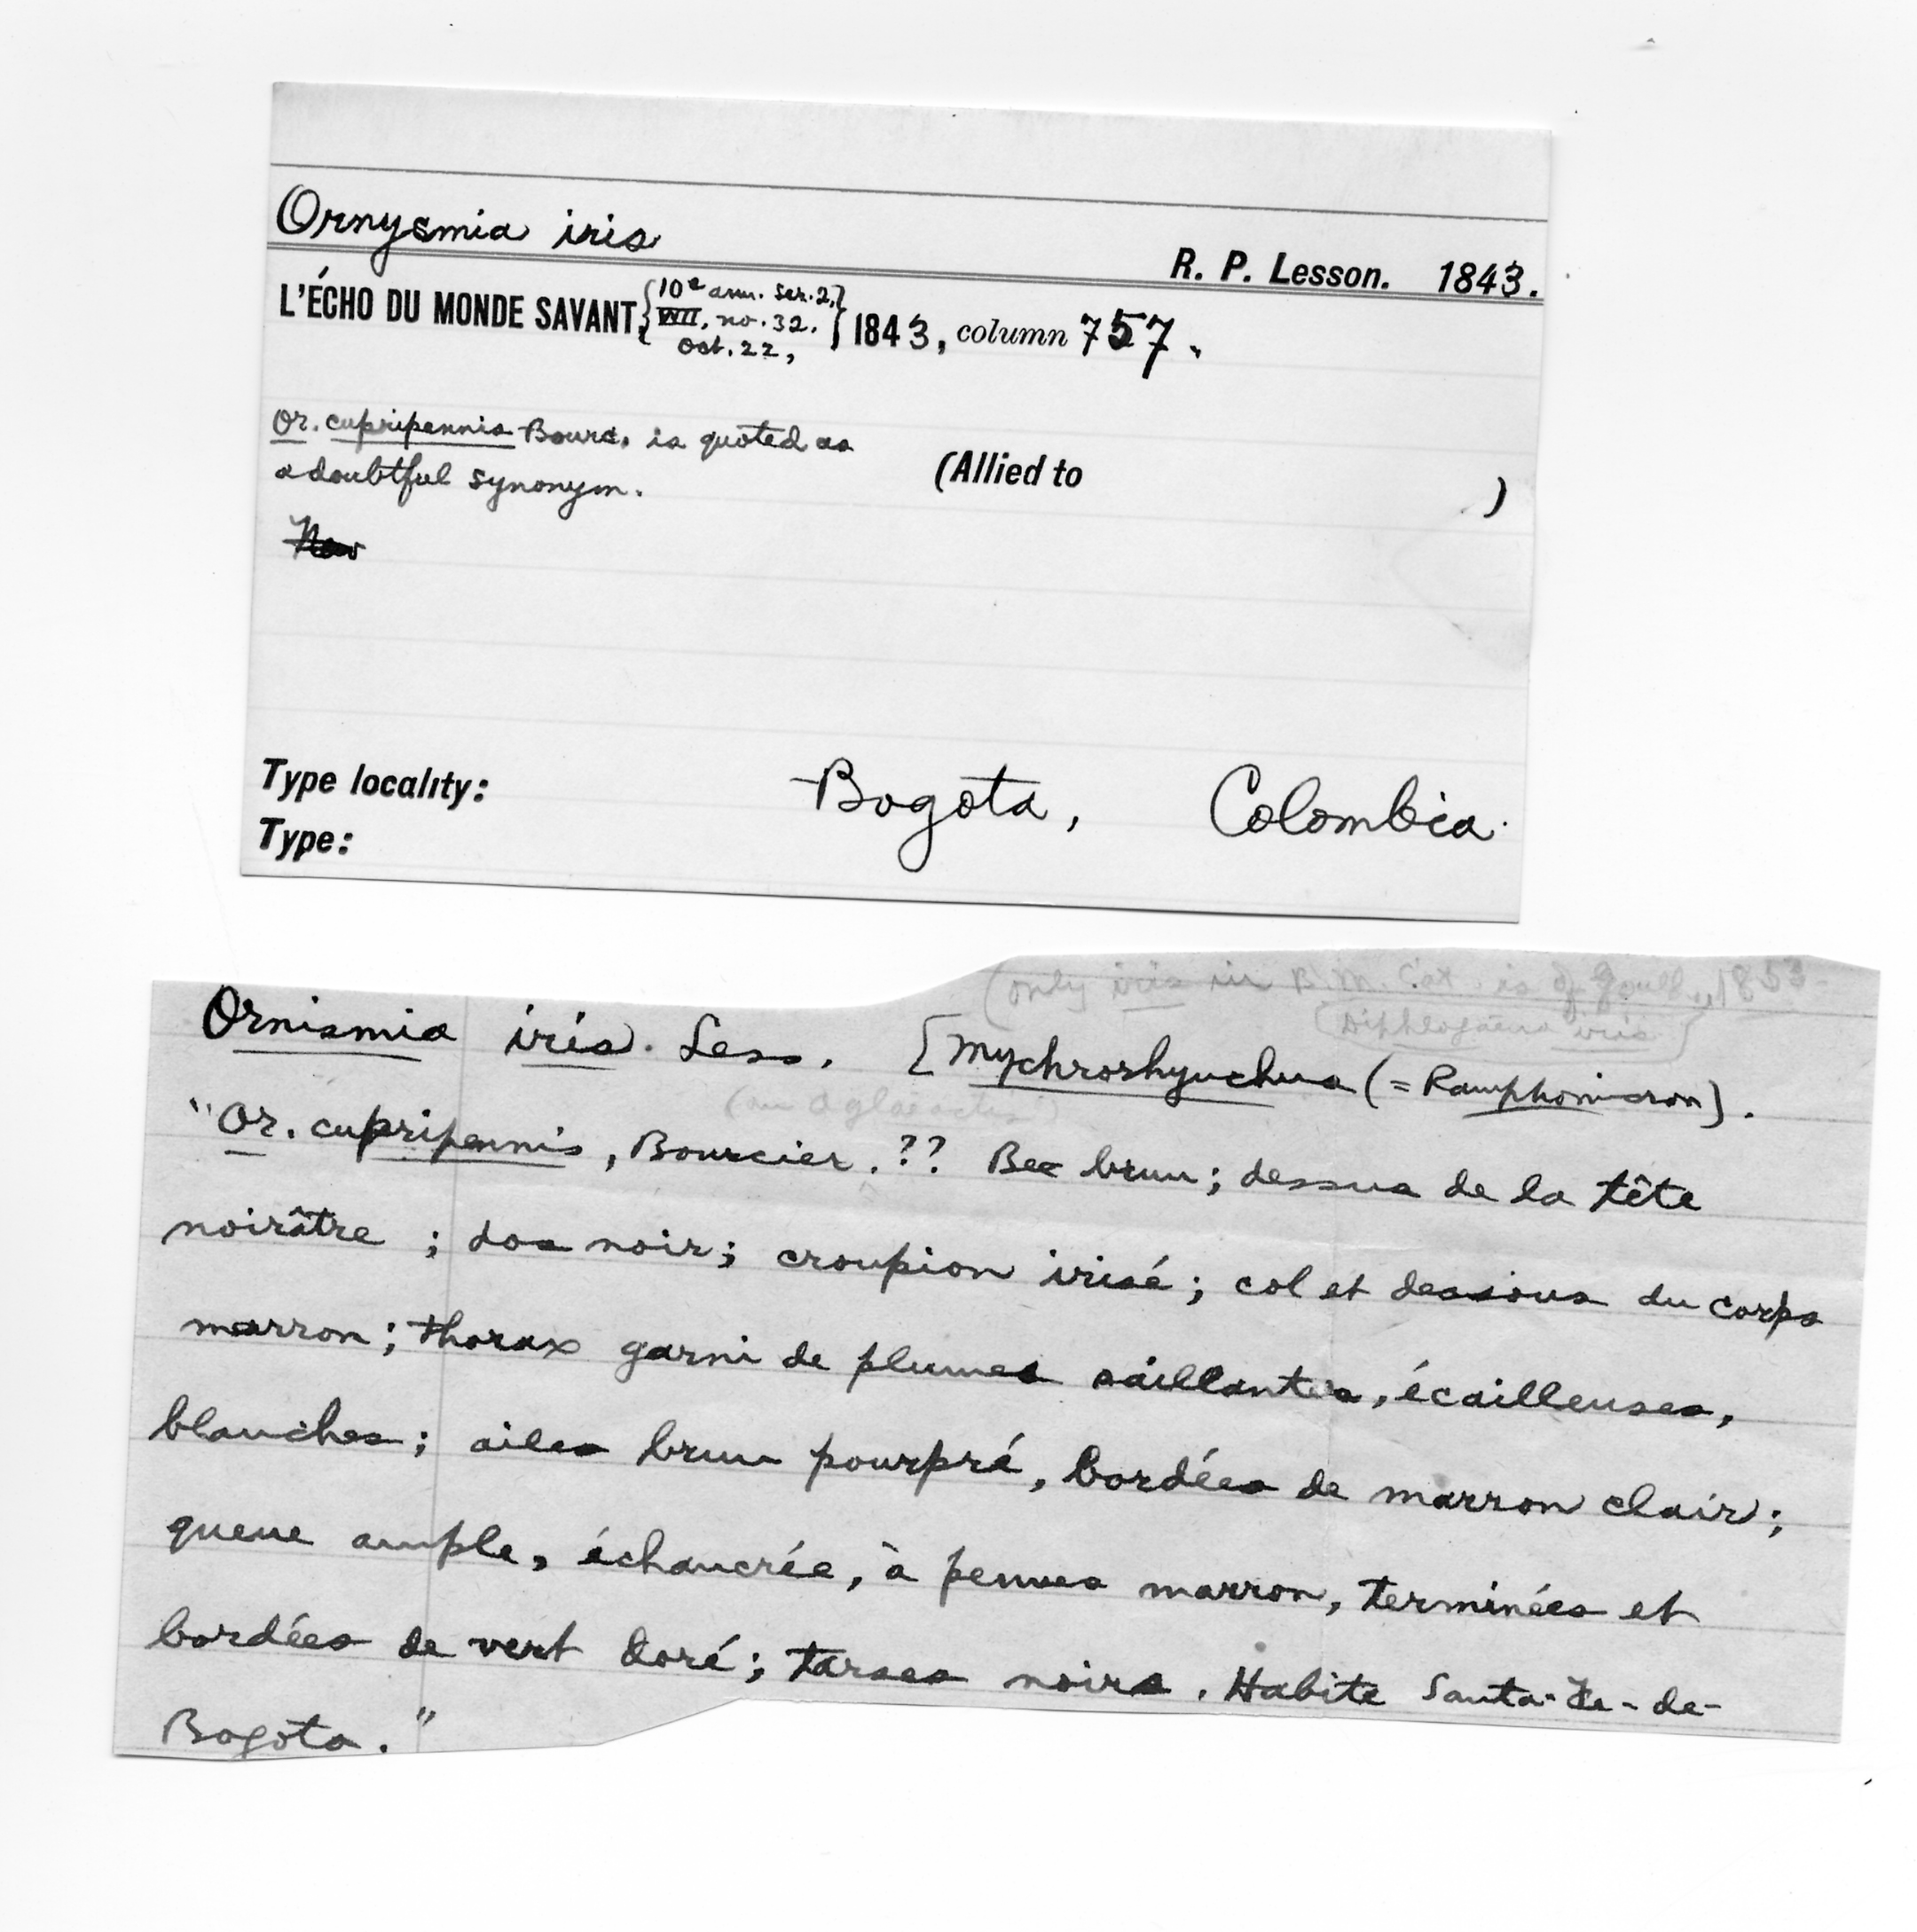 Ornysmia iris
R. P. Lesson. 1843.
L'ÉCHO DU MONDE SAVANT, {10e ann. Ser. 2, VIII, no. 32. Oct. 22,} 1843, column 757.
Or. cupripennis Bourc. is quoted as
a doubtful synonym.
(Allied to )
New
Type locality: Bogota, Colombia.
Type:
(only iris in B.M. Cat. is of Gould, 1853.
[Diphlogaena iris]
Ornismia iris. Less. [Mychrorhynchus (= Ramphomicron).
(an Aglaeactis)
"Or. cupripennis, Bourcier. ?? Bec brun; dessus de la tête
noirâtre ; dos noir; croupion irisé; col et dessous du corps
marron; thorax garni de plumes saillantes, écailleuses,
blanches; ailes brun pourpré, bordées de marron clair;
queue ample, échancrée, à pennes marron, terminées et
bordées de vert doré; tarses noirs. Habite Santa-Fe-de-
Bogota."